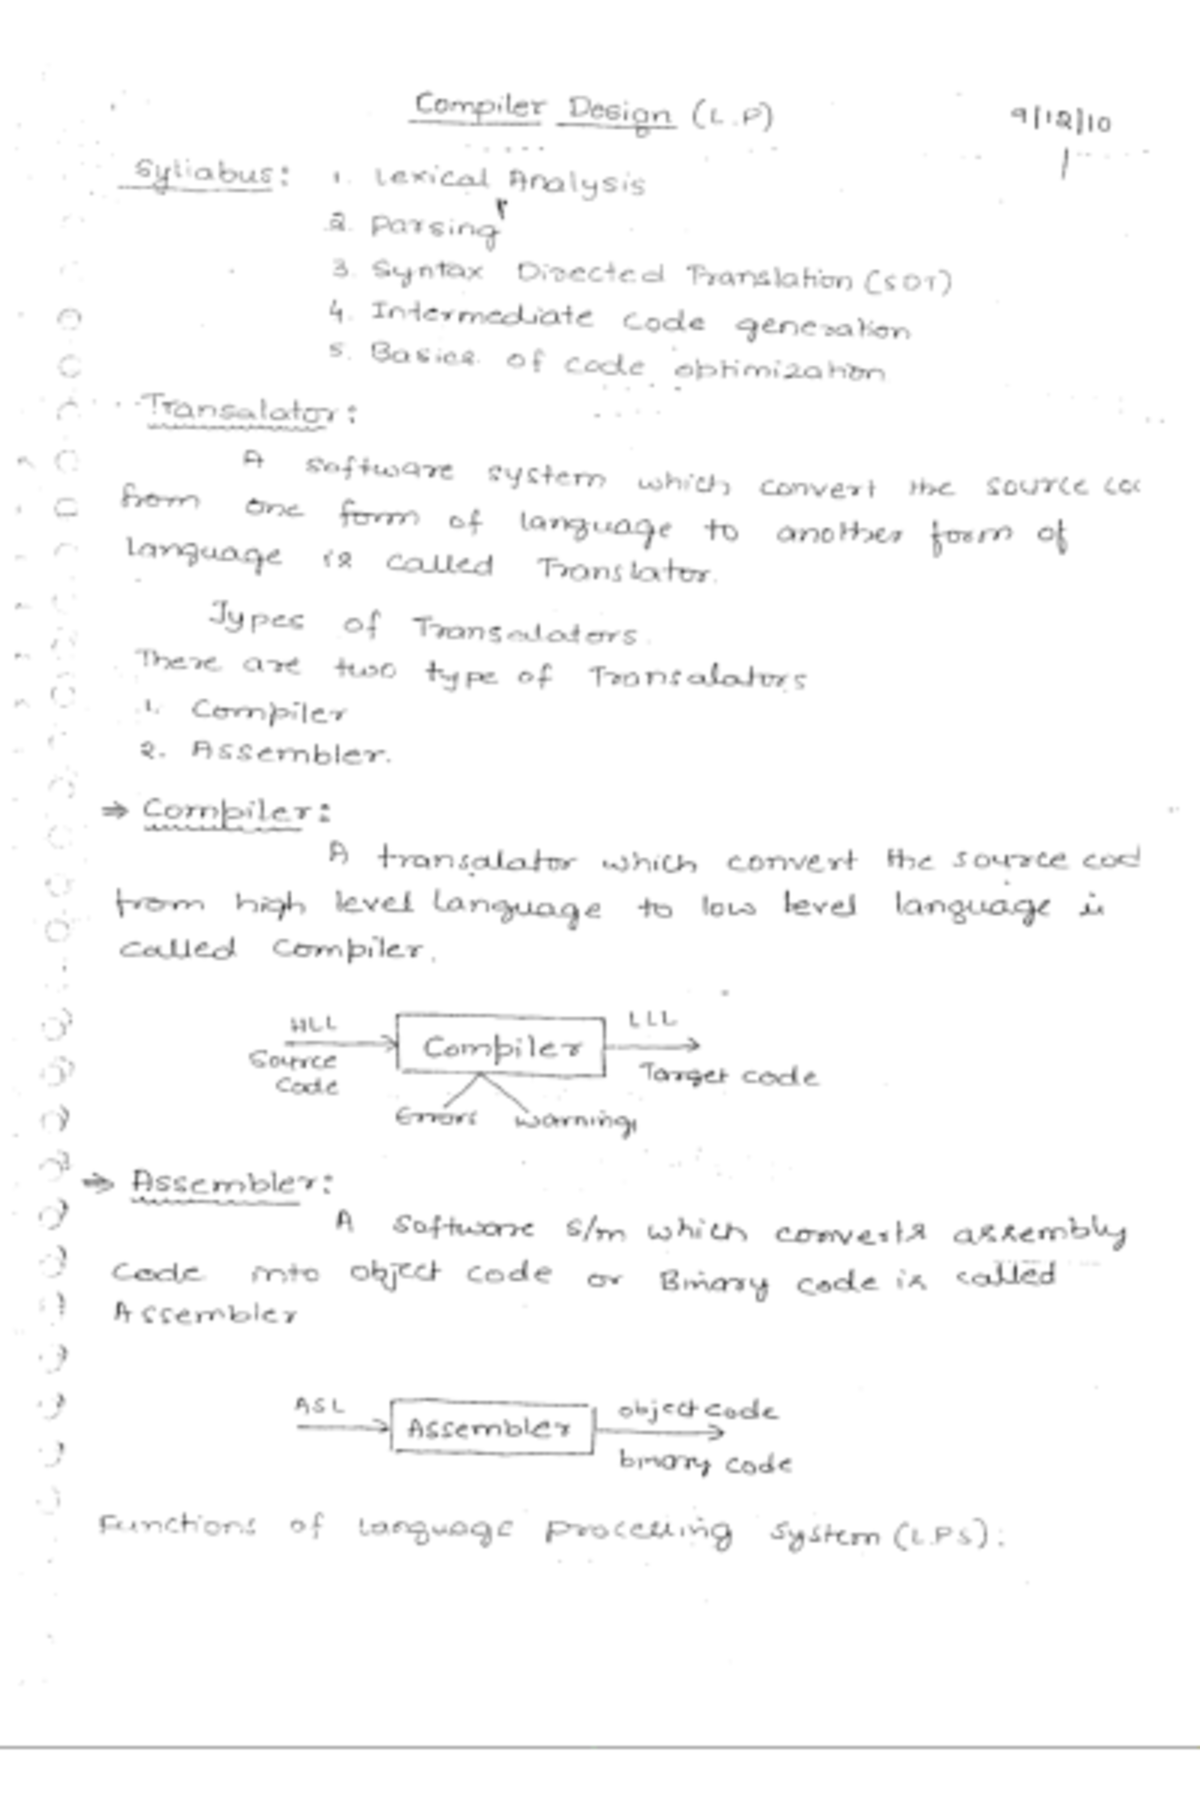 Compiler Design (L.P) 9/12/10
Syllabus: 1. Lexical Analysis
2. Parsing
3. Syntax Directed Translation (SDT)
4. Intermediate code generation
5. Basics of code optimization
Transalator:
A software system which convert the source
from one form of language to another form of
language is called Translator.
Types of Transalators.
There are two type of Transalators
1. Compiler
2. Assembler.
⇒ Compiler:
A transalator which convert the source cod
from high level language to low level language is
called Compiler.
HLL LLL
Compiler
Source Target code
Code
Errors warnings
⇒ Assembler:
A software s/m which converts assembly
code into object code or Binary code is called
Assembler
ASL object code
Assembler
binary code
Functions of Language processing system (L.P.S):